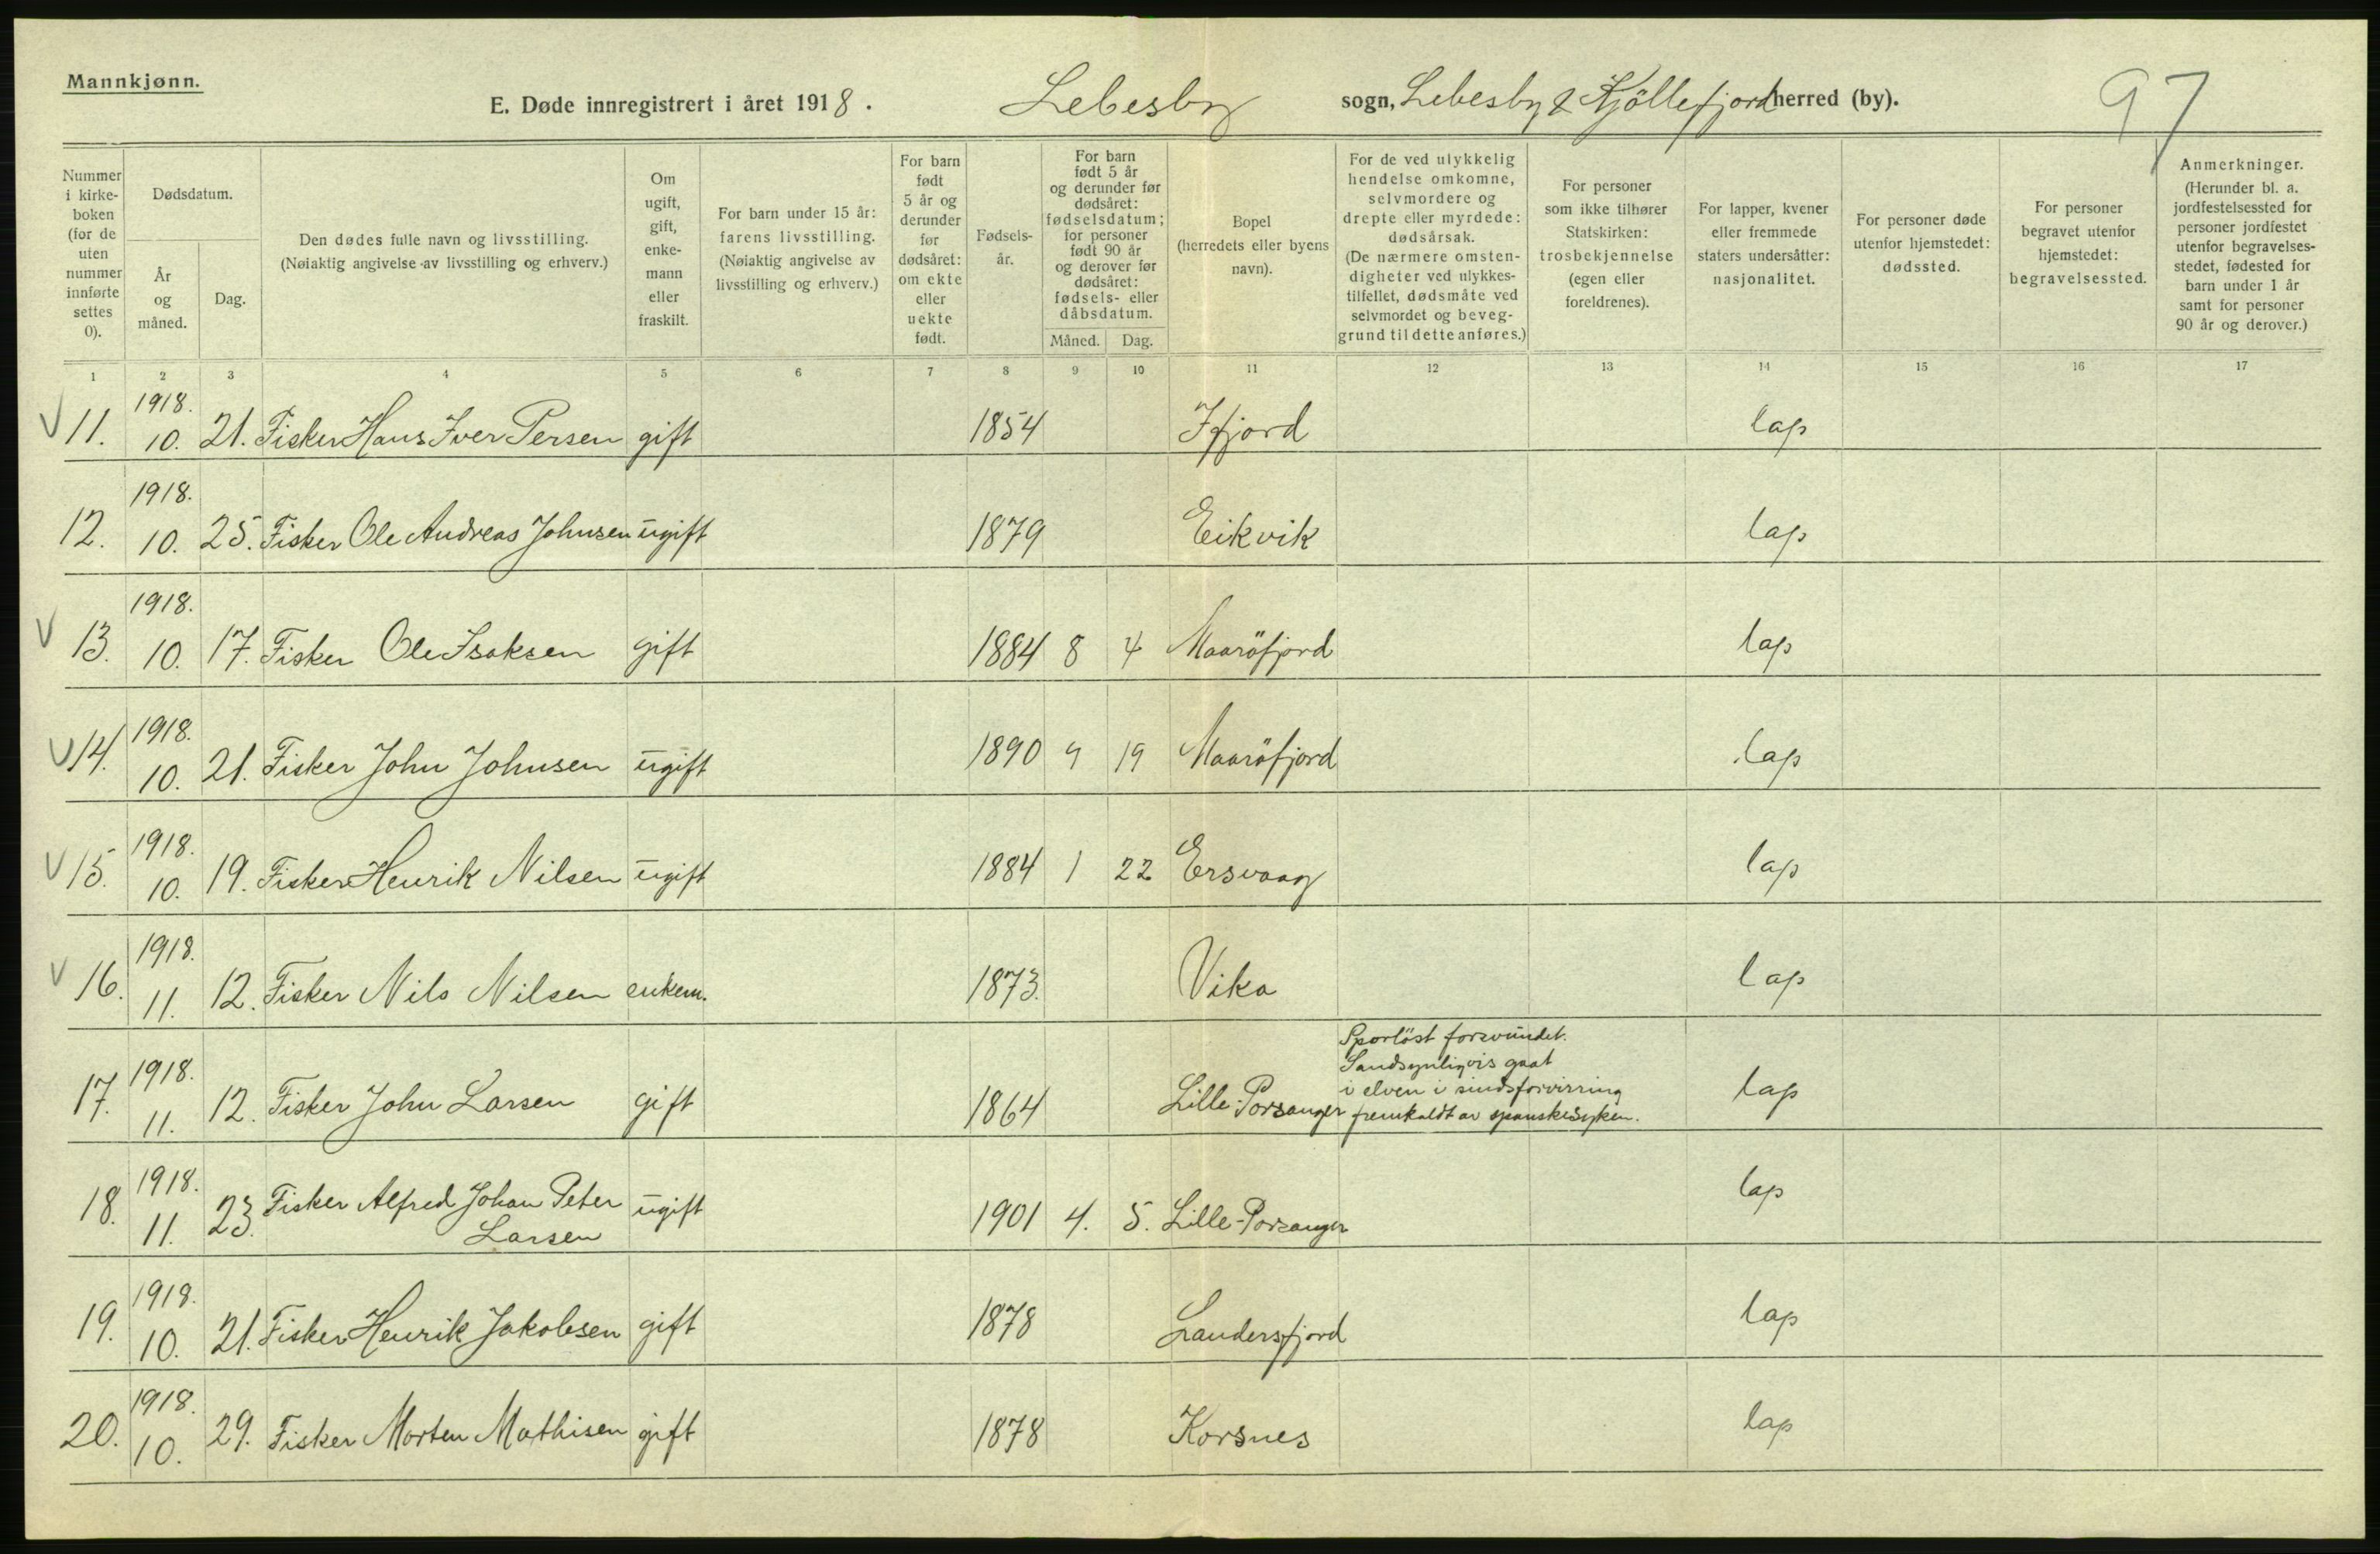 Mannkjønn.
E. Døde innregistrert i året 1918. Lebesby sogn, Lebesby & Kjöllefjord herred (by).
97
Nummer i kirke-boken (for de uten nummer innførte settes 0).
Dødsdatum.
År og måned.
Dag.
Den dødes fulle navn og livsstilling.
(Nøiaktig angivelse av livsstilling og erhverv.)
Om ugift, gift, enke-mann eller fraskilt.
For barn under 15 år: farens livsstilling.
(Nøiaktig angivelse av livsstilling og erhverv.)
For barn født 5 år og derunder før dødsåret: om ekte eller uekte født.
Fødsels-år.
For barn født 5 år og derunder før dødsåret: fødselsdatum; for personer født 90 år og derover før dødsåret: fødsels- eller dåbsdatum.
Måned. Dag.
Bopel
(herredets eller byens navn).
For de ved ulykkelig hendelse omkomne, selvmordere og drepte eller myrdede: dødsårsak.
(De nærmere omsten-digheter ved ulykkes-tilfellet, dødsmåte ved selvmordet og beveg-grund til dette anføres.)
For personer som ikke tilhører Statskirken: trosbekjennelse
(egen eller foreldrenes).
For lapper, kvener eller fremmede staters undersåtter: nasjonalitet.
For personer døde utenfor hjemstedet: dødssted.
For personer begravet utenfor hjemstedet: begravelsessted.
Anmerkninger.
(Herunder bl. a. jordfestelsessted for personer jordfestet utenfor begravelses-stedet, fødested for barn under 1 år samt for personer 90 år og derover.)
1 2 3 4 5 6 7 8 9 10 11 12 13 14 15 16 17
V 11. 1918. 10. 21. Fisker Hans Iver Persen gift 1854 Ifjord lap
12. 1918. 10. 25. Fisker Ole Andreas Johnsen ugift 1879 Eikvik lap
V 13. 1918. 10. 17. Fisker Ole Isaksen gift 1884 8 4 Maaröfjord lap
V 14. 1918. 10. 21. Fisker John Johnsen ugift 1890 9 19 Maaröfjord lap
V 15. 1918. 10. 19. Fisker Henrik Nilsen ugift 1884 1 22 Ersvaag lap
V 16. 1918. 11. 12. Fisker Nils Nilsen enkem. 1873. Vika lap
17. 1918. 11. 12. Fisker John Larsen gift 1864 Lille-Porsanger lap
Sporlöst forsvundet.
Sandsynligvis gaat
i elven i sindsforvirring
fremkaldt av spanskesyken.
18. 1918. 11. 23. Fisker Alfred Johan Peter
Larsen ugift 1901 4. 5. Lille-Porsanger lap
19. 1918. 10. 21. Fisker Henrik Jakobsen gift 1878 Landersfjord lap
20. 1918. 10. 29. Fisker Morten Mathisen gift 1878 Korsnes lap